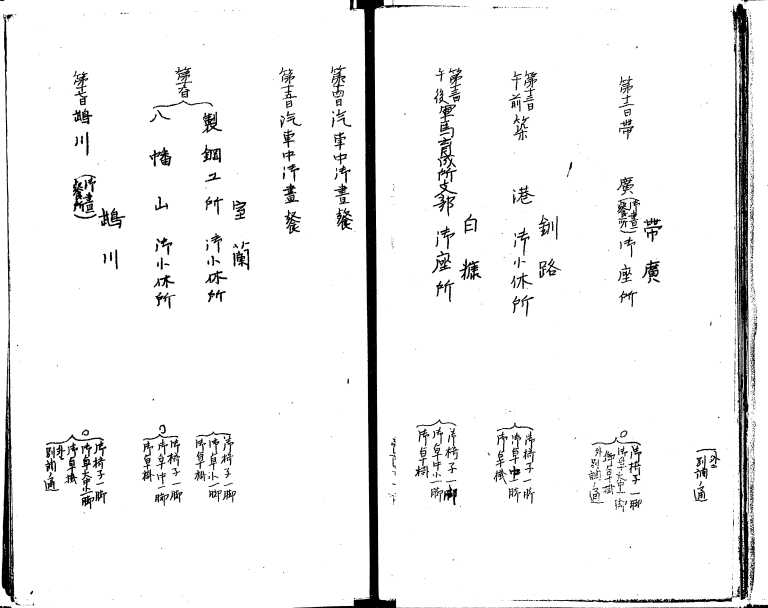 外ニ
別調ノ通
帯廣
第十二日 帯廣(御晝餐所)御座所
御椅子 一脚
御卓大中 一脚
御卓掛
外別調ノ通
釧路
午前 築港 御小休所
御椅子 一脚
御卓中 一脚
御卓掛
白糠
午後 軍馬育成所支部 御座所
御椅子 一脚
御卓中小 一脚
御卓掛
第十四日 汽車中御晝餐
第十五日 汽車中御晝餐
室蘭
製鋼工所 御小休所
御椅子 一脚
御卓小 一脚
御卓掛
八幡山 御小休所
御椅子 一脚
御卓中 一脚
御卓掛
鵡川
鵡川(御晝餐所)
御椅子 一脚
御卓大小 一脚
御卓掛
外ニ
別調ノ通